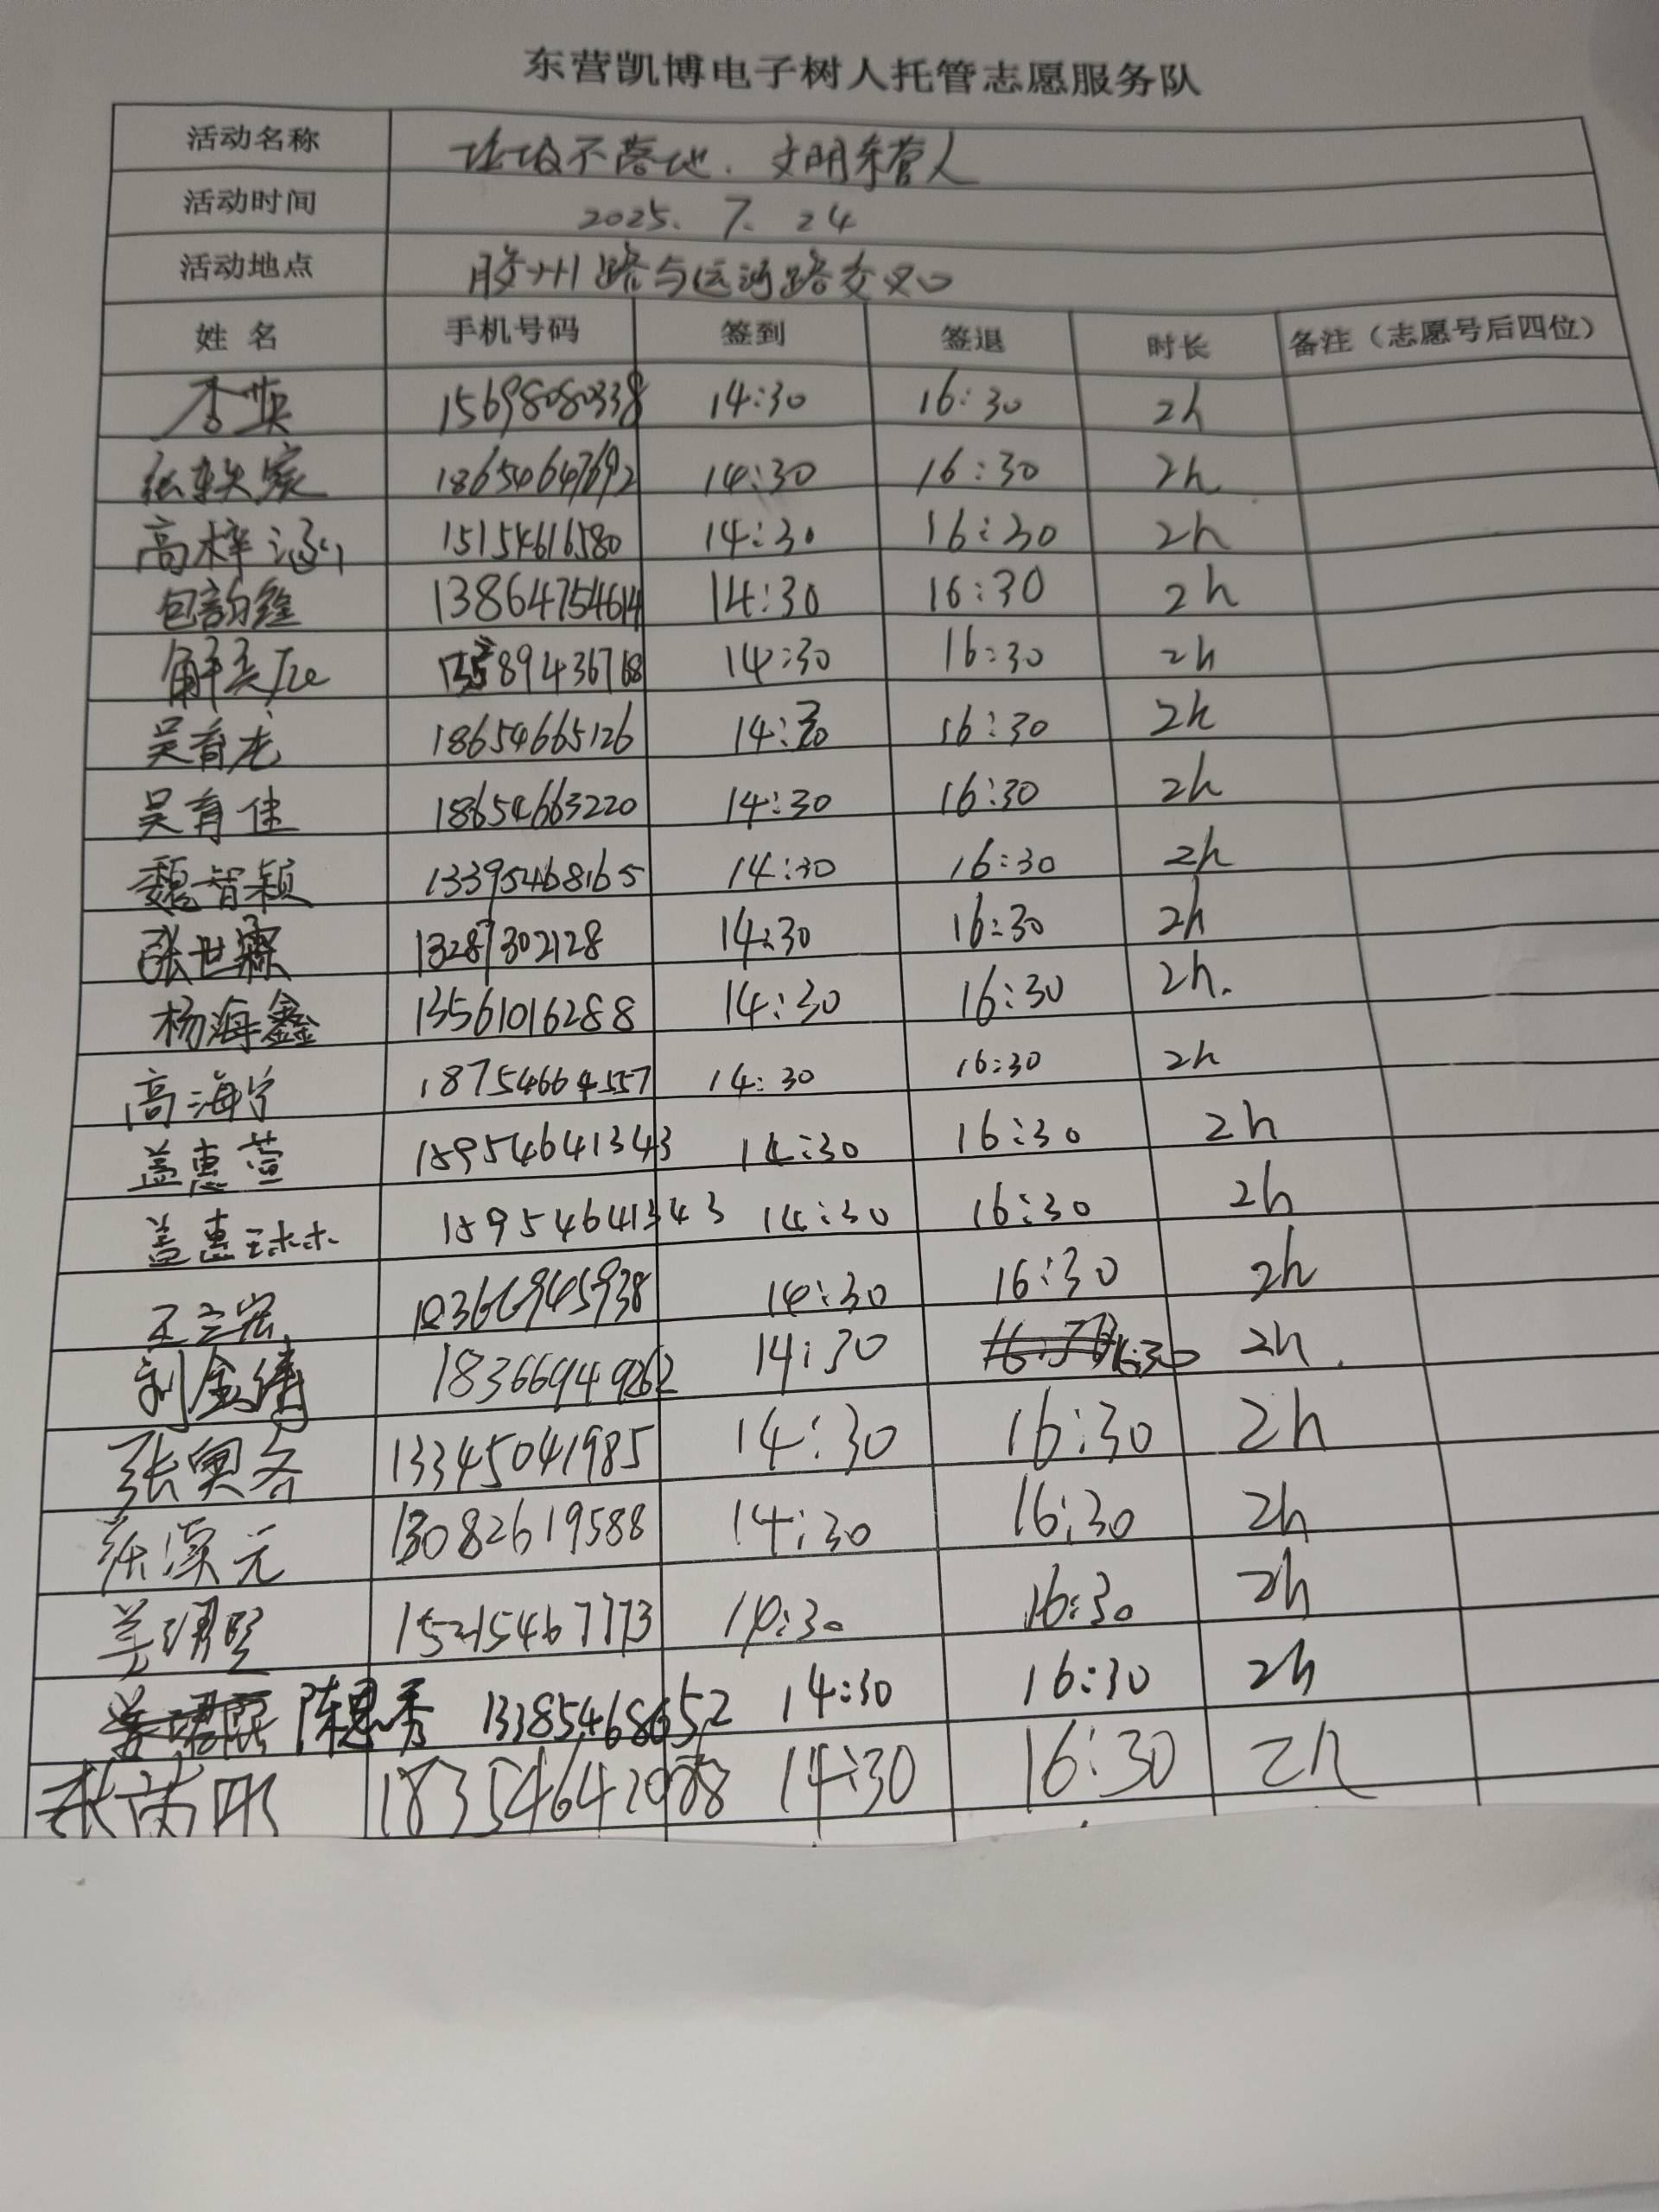 东营凯博电子树人托管志愿服务队
活动名称 垃圾不落地．文明东营人
活动时间 2025. 7. 24
活动地点 胶州路与运河路交叉口
姓 名 手机号码 签到 签退 时长 备注（志愿号后四位）
李英 15698080338 14:30 16:30 2h
张轶家 18654647692 14:30 16:30 2h
高梓涵 15154616580 14:30 16:30 2h
包韵鑫 13864754614 14:30 16:30 2h
解 89436768 14:30 16:30 2h
吴育龙 18654665126 14:30 16:30 2h
吴育佳 18654663220 14:30 16:30 2h
魏智颖 13395468165 14:30 16:30 2h
张世霖 13287302128 14:30 16:30 2h
杨海鑫 13561016288 14:30 16:30 2h.
高海宁 18754664557 14:30 16:30 2h
盖惠萱 15954641343 14:30 16:30 2h
盖惠琳 15954641343 14:30 16:30 2h
王立宏 14:30 16:30 2h
刘金涛 18366949262 14:30 16:30 2h.
张奥冬 13345041985 14:30 16:30 2h
张溟元 13082619588 14:30 16:30 2h
姜珺熙 15215467773 14:30 16:30 2h
陈思秀 13385468652 14:30 16:30 2h
张 14:30 16:30 2h